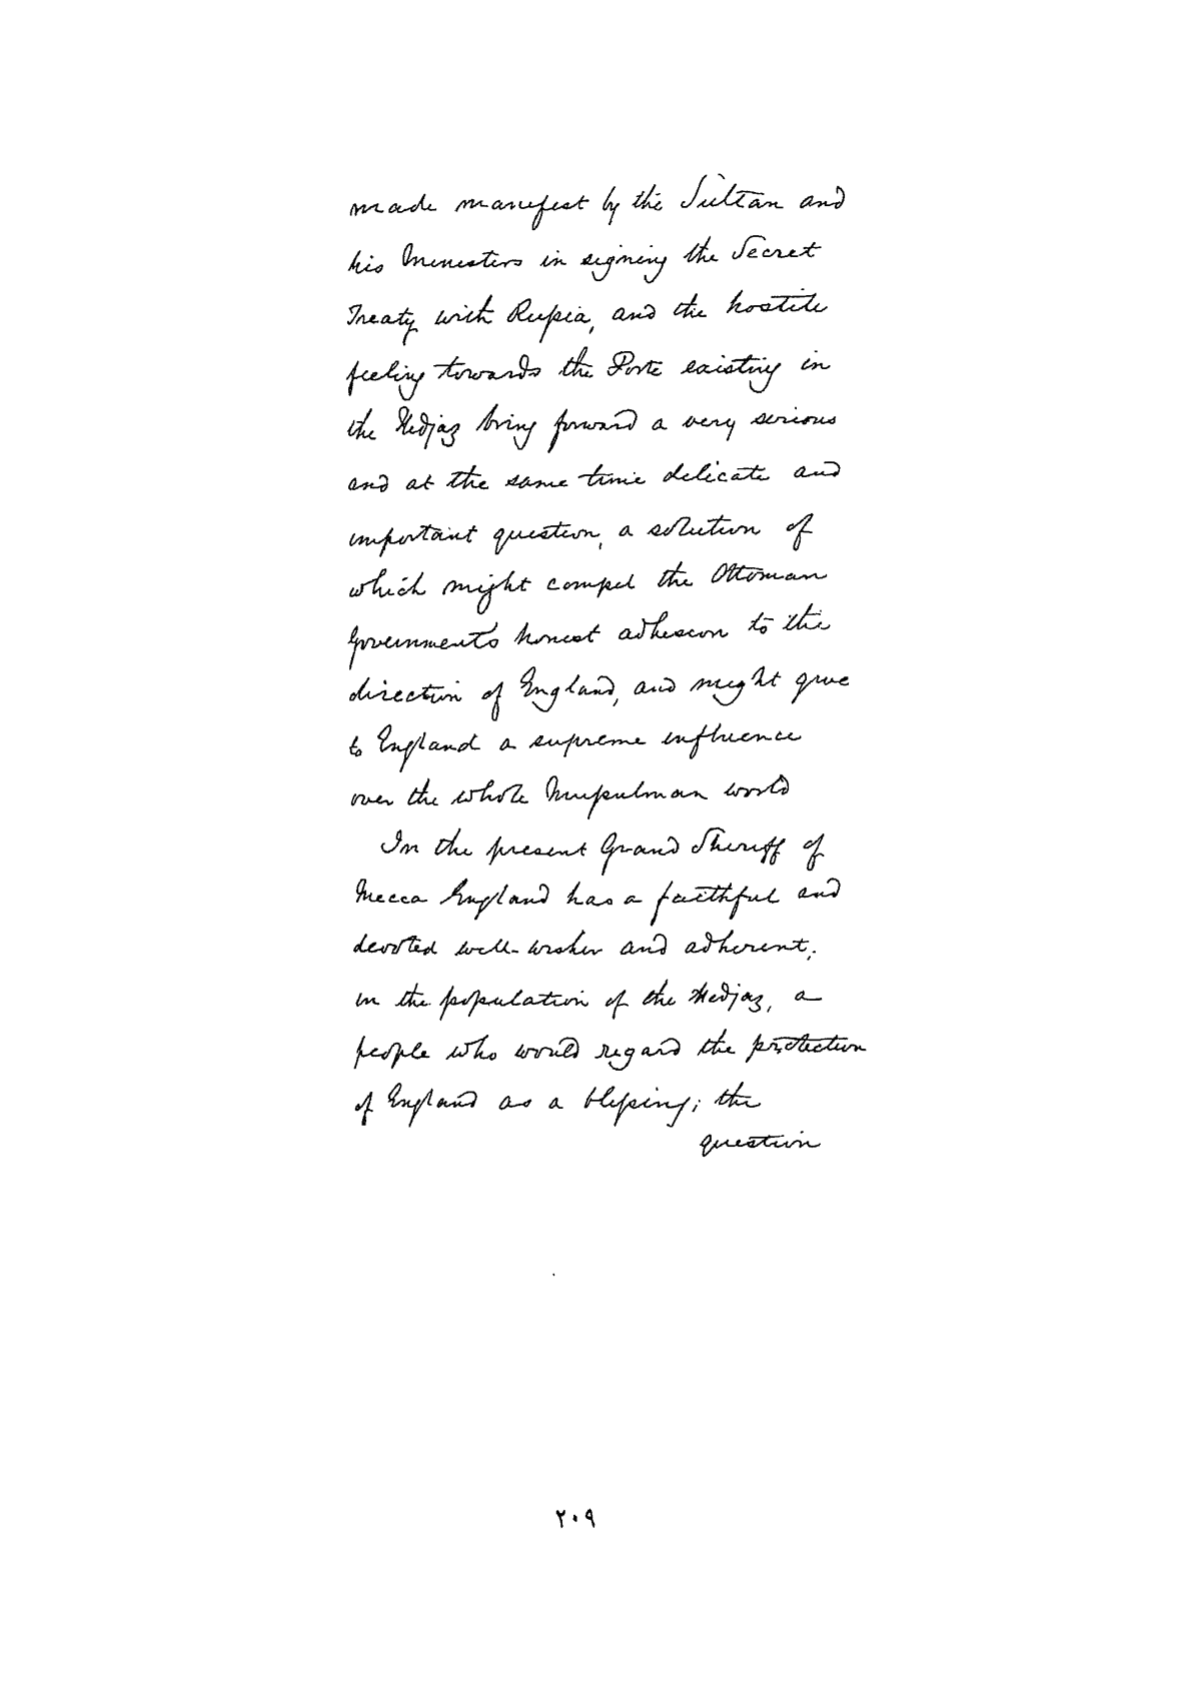 made manifest by the Sultan and
his Ministers in signing the Secret
Treaty with Russia, and the hostile
feeling towards the Porte existing in
the Hedjaz bring forward a very serious
and at the same time delicate and
important question, a solution of
which might compel the Ottoman
Government's honest adhesion to the
direction of England, and might give
to England a supreme influence
over the whole Mussulman world
In the present Grand Sheriff of
Mecca England has a faithful and
devoted well-wisher and adherent;
in the population of the Hedjaz, a
people who would regard the protection
of England as a blessing; the
question
٢٠٩